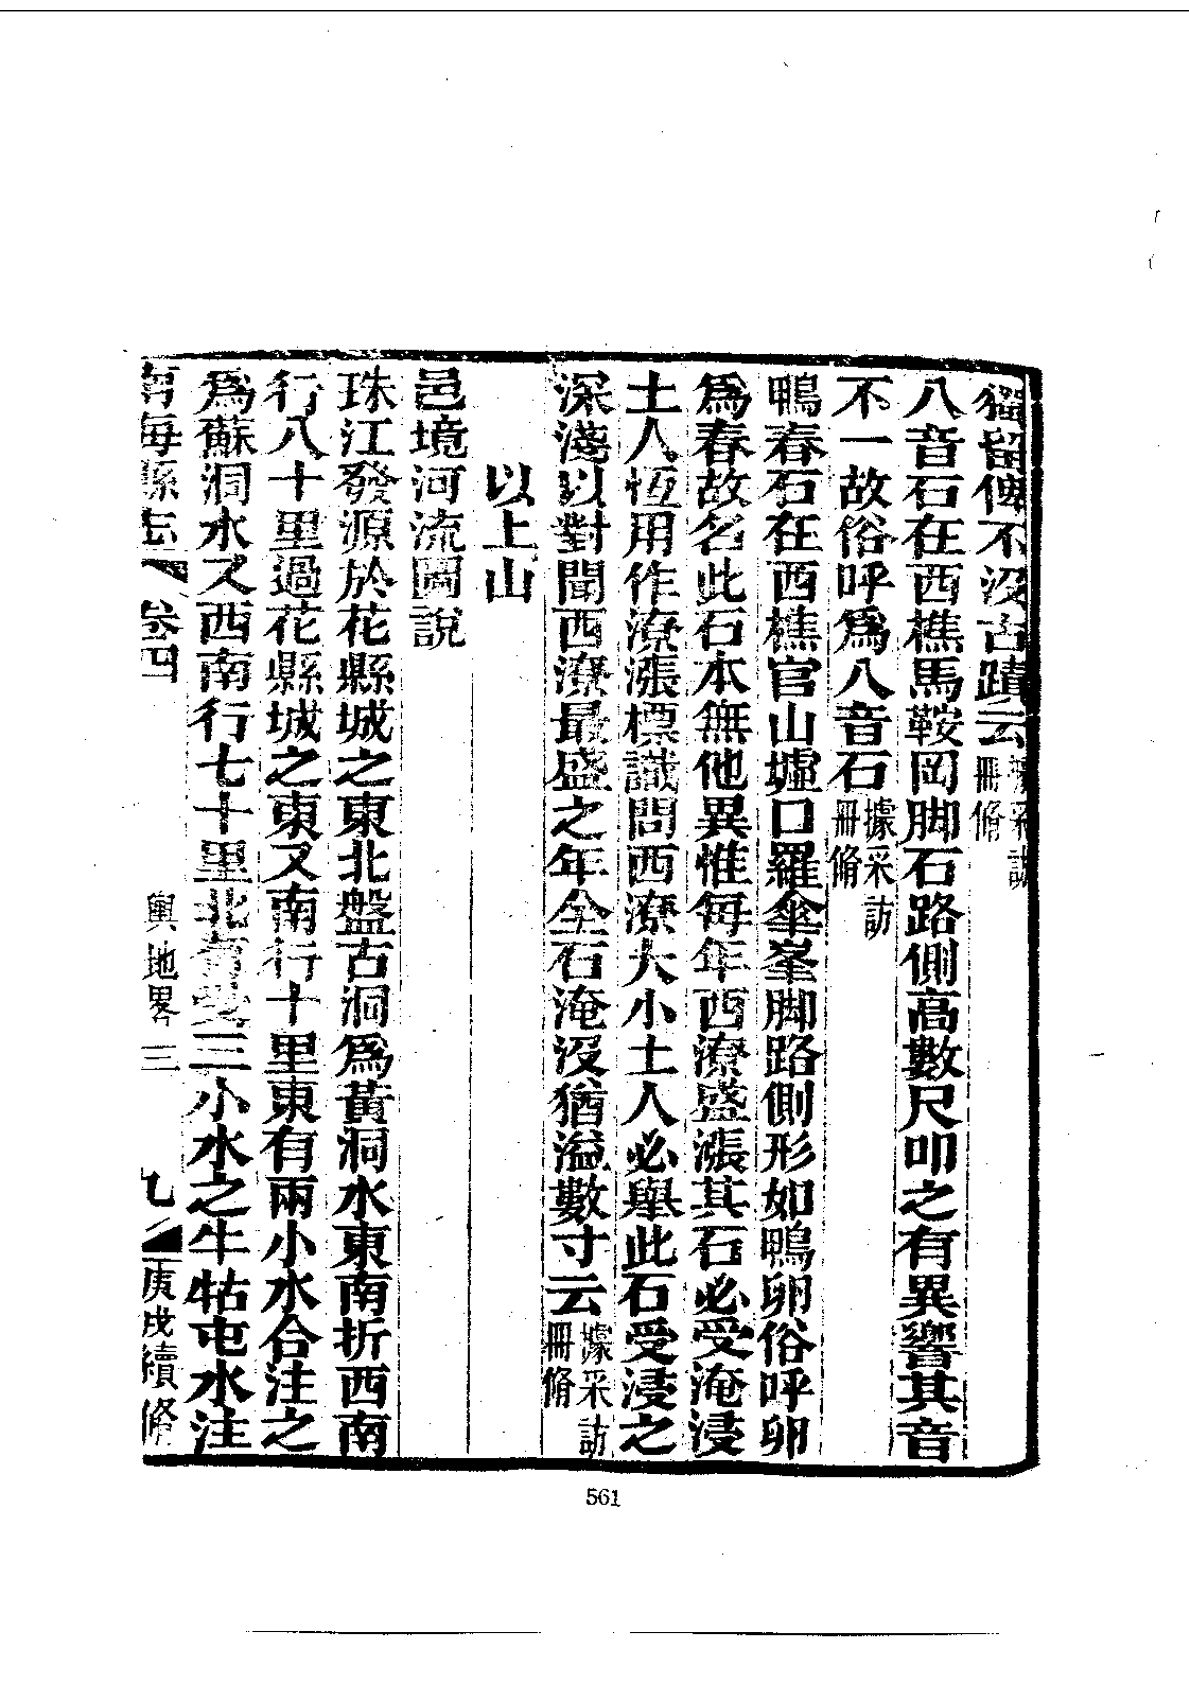 獨留俾不沒古蹟云據采訪冊脩
八音石在西樵馬鞍岡脚石路側高數尺叩之有異響其音
不一故俗呼爲八音石據采訪冊脩
鴨春石在西樵官山墟口羅傘峯脚路側形如鴨卵俗呼卵
爲春故名此石本無他異惟每年西潦盛漲其石必受淹浸
土人恆用作潦漲標識問西潦大小土人必舉此石受浸之
深淺以對聞西潦最盛之年全石淹沒猶溢數寸云據采訪冊脩
以上山
邑境河流圖說
珠江發源於花縣城之東北盤古洞爲黃洞水東南折西南
行八十里過花縣城之東又南行十里東有兩小水合注之
爲蘇洞水又西南行七十里北三小水之牛牯屯水注
南海縣志 卷四 輿地畧三 九 庚戌續脩
561